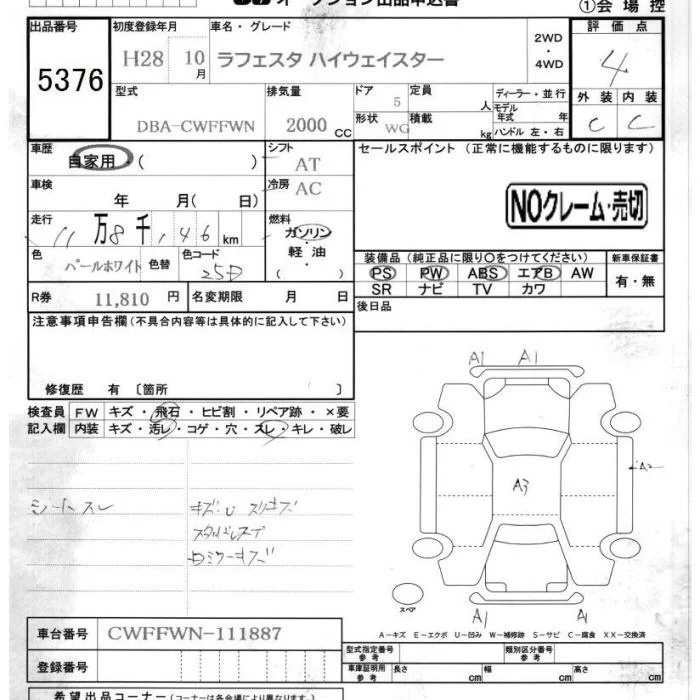 オークション出品申込書
①会場控
出品番号 初度登録年月 車名・グレード 2WD・4WD 評価点
5376 H28 10月 ラフェスタ ハイウェイスター 4
型式 排気量 ドア 定員 人 ディーラー・並行 外装 内装
DBA-CWFFWN 2000 CC 5 モデル年式 年 C C
形状 WG 積載 kg ハンドル 左・右
車歴 自家用・( ) シフト AT セールスポイント (正常に機能するものに限ります)
車検 年 月( 日) 冷房 AC
NOクレーム・売切
走行 11万8千,146km 燃料 ガソリン・軽油( )
色 パールホワイト 色替 色コード 25D
装備品(純正品に限り○をつけてください) 新車保証書
PS PW ABS エアB AW 有・無
SR ナビ TV カワ
R券 11,810円 名変期限 月 日 後日品
注意事項申告欄(不具合内容等は具体的に記入して下さい)
修復歴 有〔箇所 〕
検査員 FW キズ・飛石・ヒビ割・リペア跡・×要
記入欄 内装 キズ・汚レ・コゲ・穴・スレ・キレ・破レ
シートスレ
A1 A1
A2
A3
A1 A1
スペア
A-キズ E-エクボ U-凹み W-補修跡 S-サビ C-腐食 XX-交換済
車台番号 CWFFWN-111887
型式指定番号 参考 類別区分番号 参考
登録番号 車庫証明用 参考 長さ cm 幅 cm 高さ cm
希望出品コーナー(コーナーは各会場により異なります。)